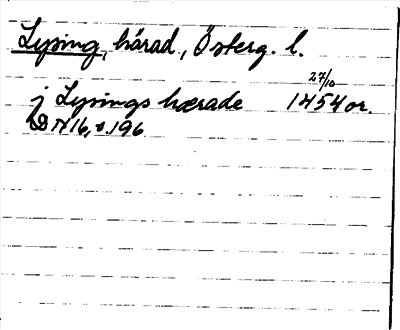 Lysing, härad, Österg. l.
27/10
j Lysings hærade 1454 or.
D N 16, s. 196